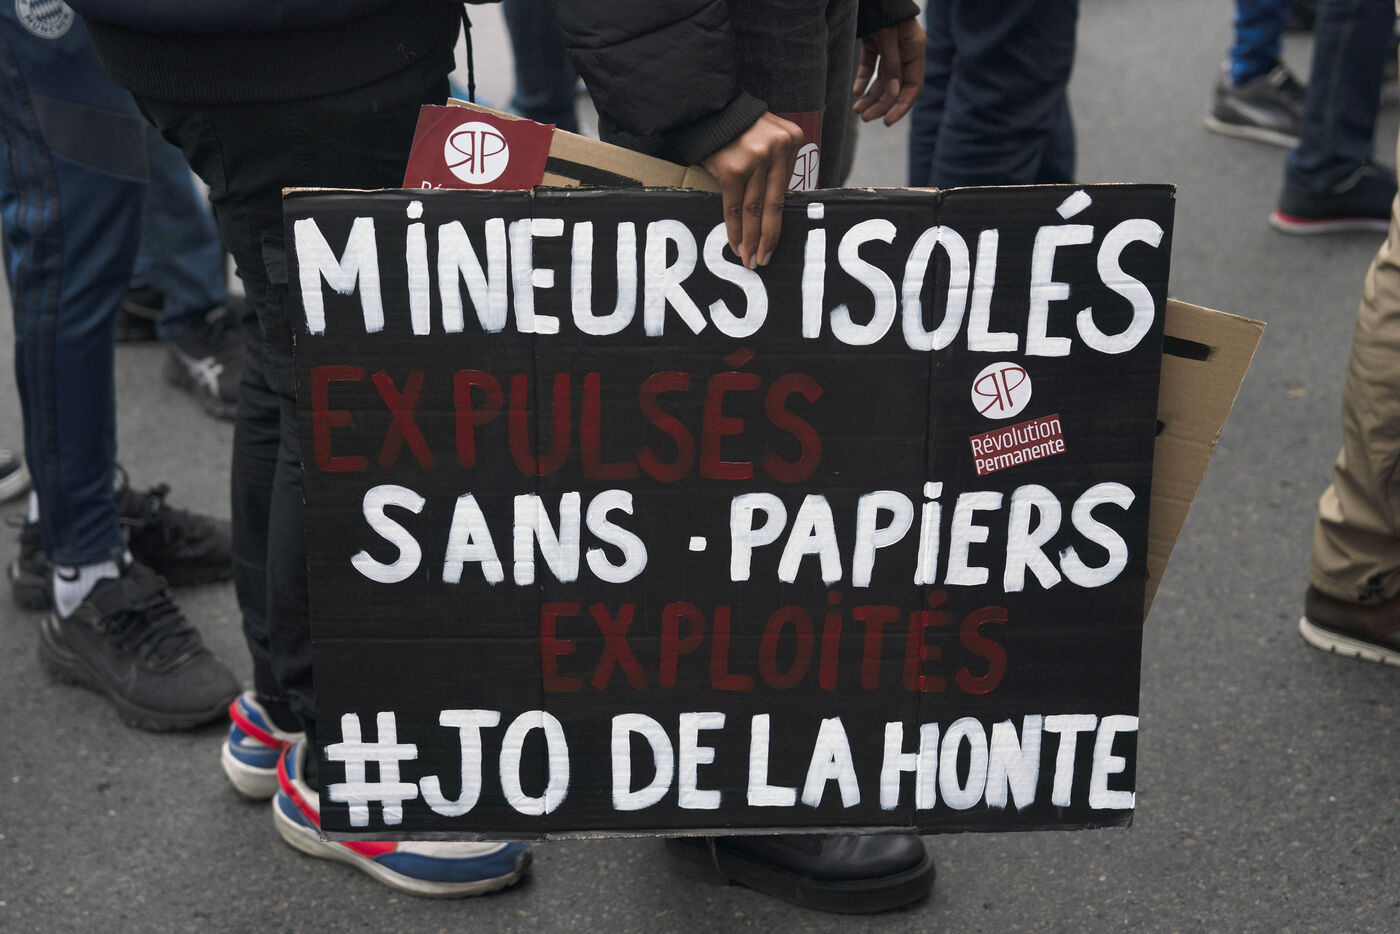 MÜNCHEN
RP
RP
MiNEURS iSOLÉS
EXPULSÉS
RP
Révolution
Permanente
SANS·PAPiERS
EXPLOiTÉS
#JO DE LA HONTE